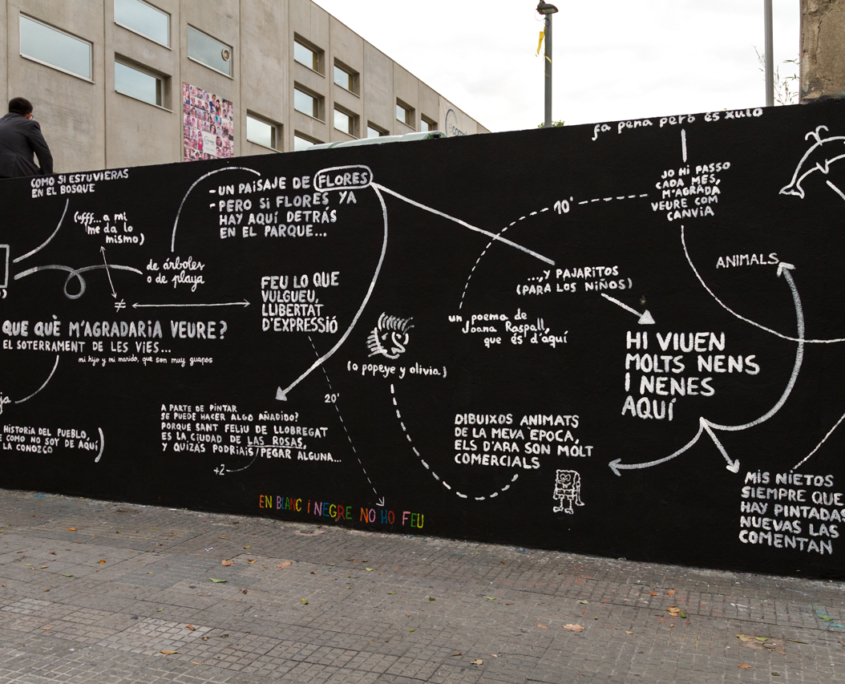 COMO SI ESTUVIERAS
EN EL BOSQUE
(ufff... a mi
me da lo
mismo)
de árboles
o de playa
- UN PAISAJE DE FLORES
- PERO SI FLORES YA
HAY AQUÍ DETRÁS
EN EL PARQUE...
≠
FEU LO QUE
VULGUEU,
LLIBERTAT
D'EXPRESSIÓ
QUE QUÈ M'AGRADARIA VEURE?
EL SOTERRAMENT DE LES VIES...
mi hijo y mi marido, que son muy guapos
HISTORIA DEL PUEBLO,
COMO NO SOY DE AQUÍ
LA CONOZCO
A PARTE DE PINTAR
SE PUEDE HACER ALGO AÑADIDO?
PORQUE SANT FELIU DE LLOBREGAT
ES LA CIUDAD DE LAS ROSAS,
Y QUIZÁS PODRÍAIS PEGAR ALGUNA...
+2
20'
EN BLANC I NEGRE NO HO FEU
(o popeye y olivia)
10'
un poema de
Joana Raspall,
que és d'aquí
...Y PAJARITOS
(PARA LOS NIÑOS)
DIBUIXOS ANIMATS
DE LA MEVA ÈPOCA,
ELS D'ARA SON MOLT
COMERCIALS
fa pena però és xulo
JO HI PASSO
CADA MES,
M'AGRADA
VEURE COM
CANVIA
ANIMALS
HI VIUEN
MOLTS NENS
I NENES
AQUÍ
MIS NIETOS
SIEMPRE QUE
HAY PINTADAS
NUEVAS LAS
COMENTAN